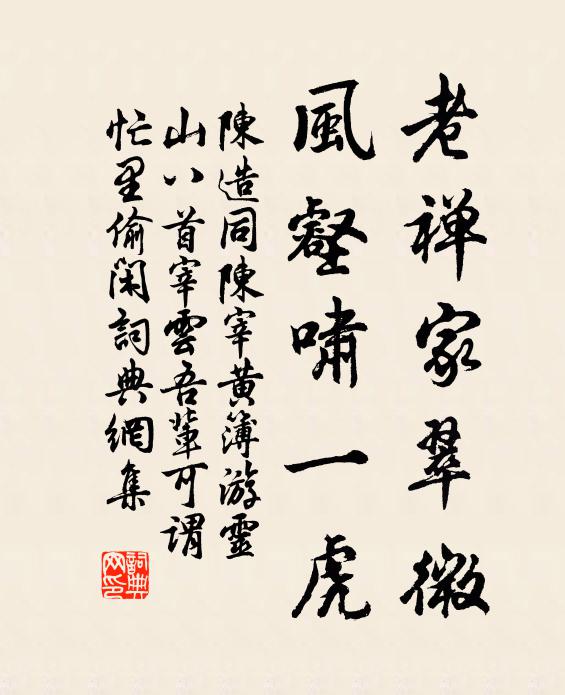 老禅家翠微
風壑嘯一虎
陳造同陳宰黄簿游靈
山八首宰雲吾輩可謂
忙里偷閑詞典網集
詞典網印